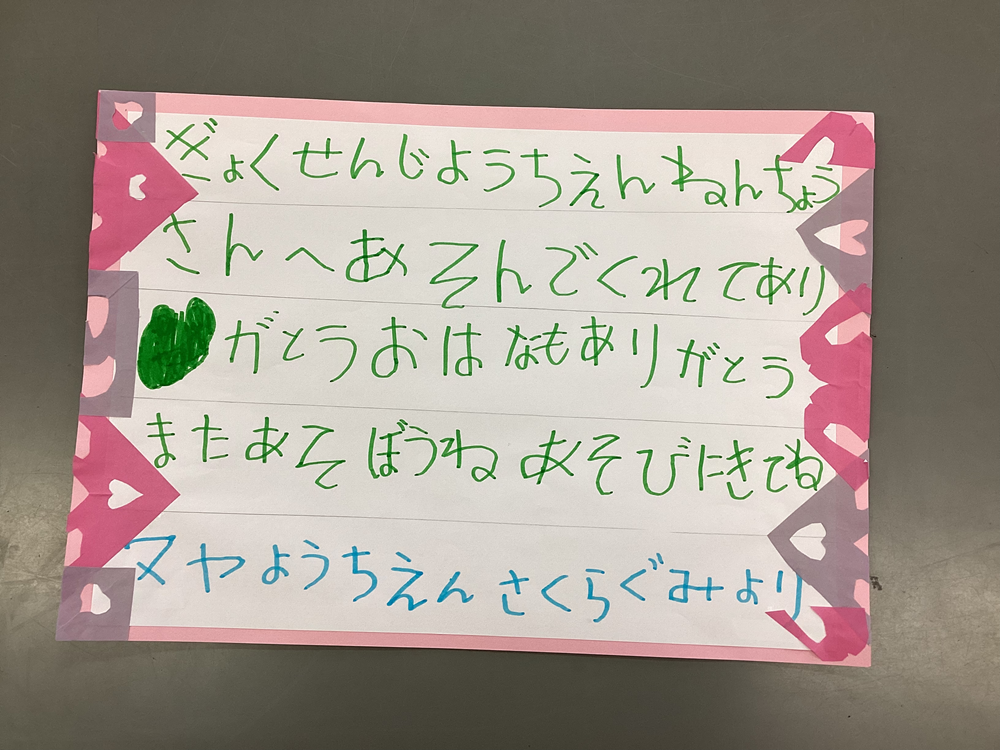 ぎょくせんじようちえんねんちょう
さんへあそんでくれてあり
がとうおはなもありがとう
またあそぼうねあそびにきてね
ヌヤようちえんさくらぐみより